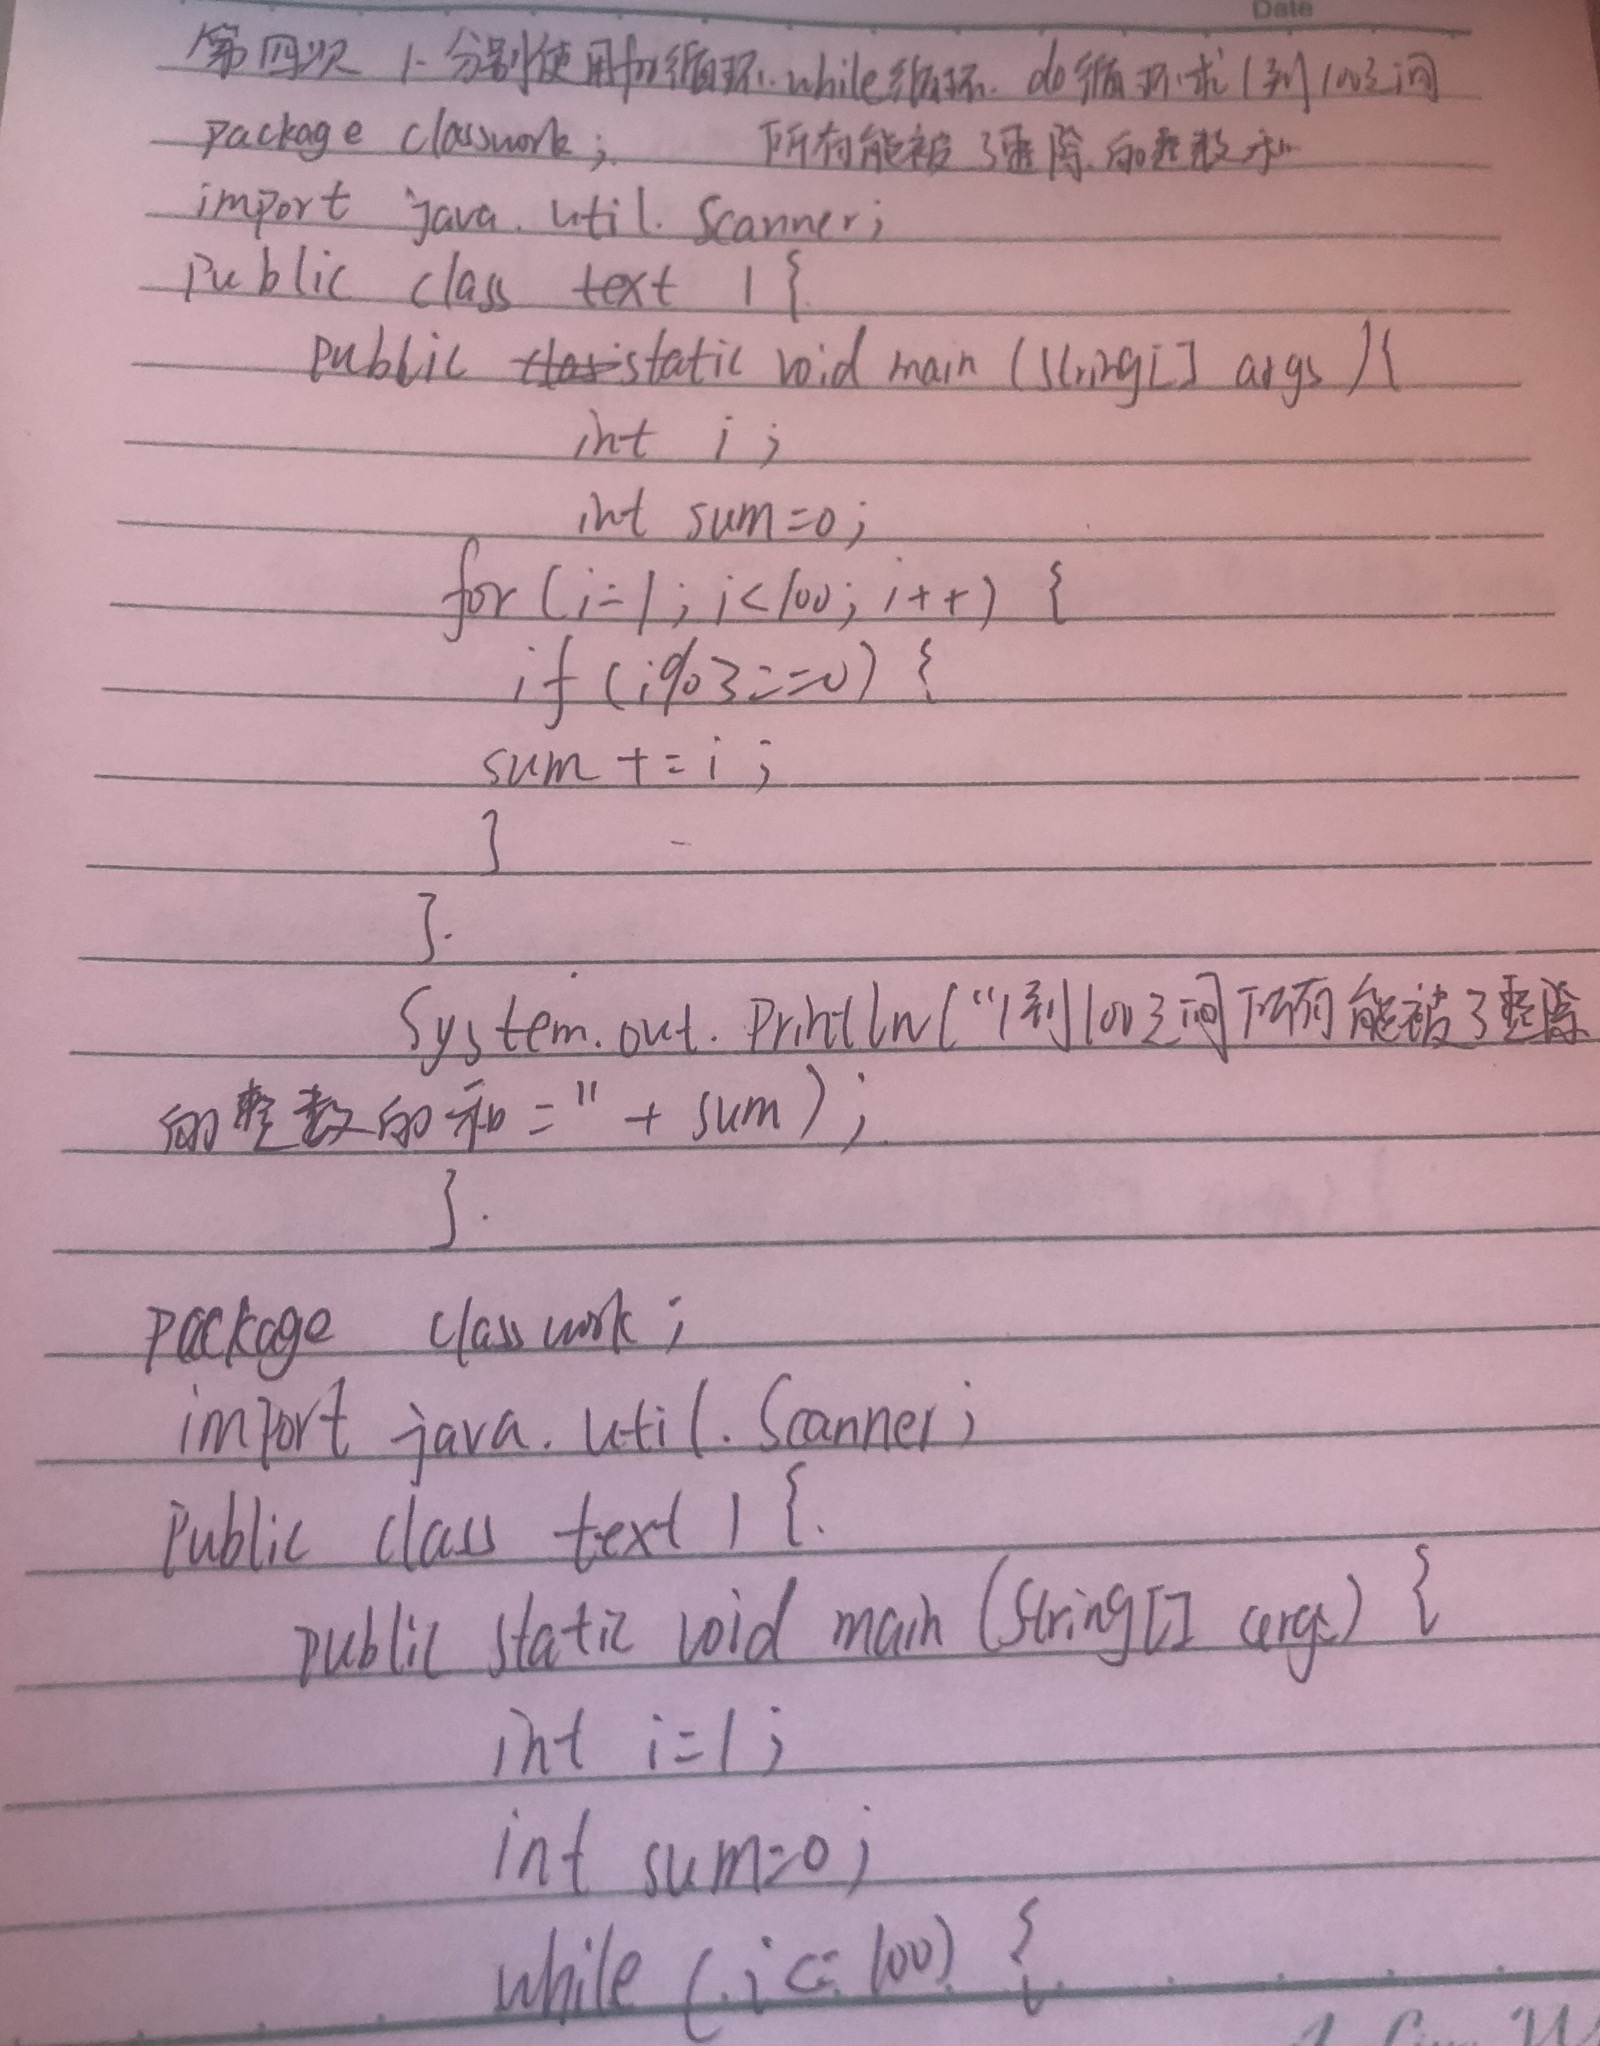 Date
第四次 1. 分别使用for循环.while循环. do循环.求1到100之间
package classwork;
所有能被3整除的整数和
import java.util.Scanner;
Public class text 1 {
public static void main (String[] args ){
int i ;
int sum=0;
for (i=1; i<100; i++) {
if (i%3==0) {
sum +=i ;
}
}.
System.out.Println("1到100之间所有能被3整除
的整数的和=" + sum);
}.
package classwork;
import java.util.Scanner;
Public class text 1 {.
public static void main (String[] args) {
int i=1;
int sum=0;
while (i<=100) {